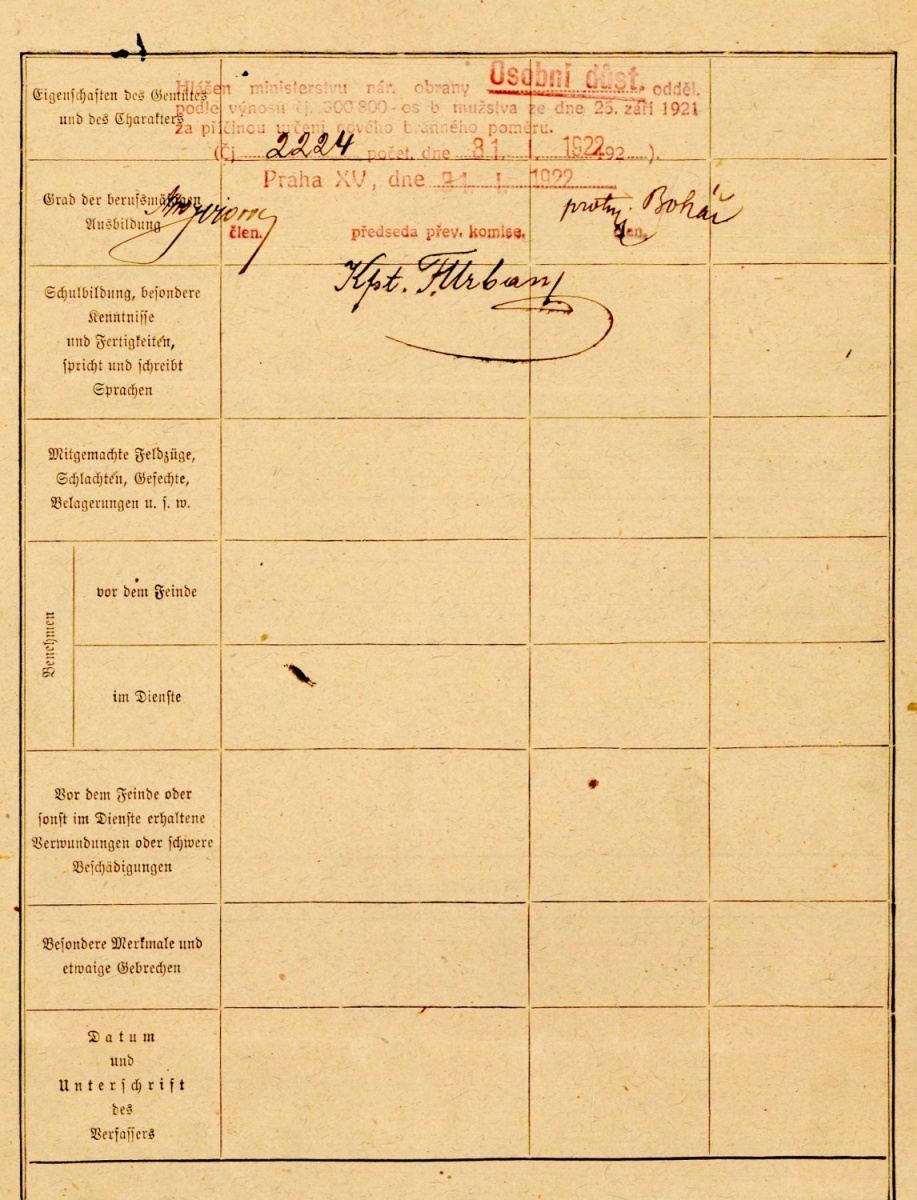 Eigenschaften des Gemütes
und des Charakters
Hlášen ministerstvu nár. obrany Osobní důst. odděl.
podle výnosu čj. 300 800-os b mužstva ze dne 25. září 1921
za příčinou určení nového branného poměru.
(Čj 2224 počet. dne 31. I. 1922 192 ).
Praha XV, dne 31. I. 1922
Grad der berufsmäßigen
Ausbildung
člen. předseda přev. komise. člen.
Boháč
Kpt. F. Urban
Schulbildung, besondere
Kenntnisse
und Fertigkeiten,
spricht und schreibt
Sprachen
Mitgemachte Feldzüge,
Schlachten, Gefechte,
Belagerungen u. s. w.
Benehmen
vor dem Feinde
im Dienste
Vor dem Feinde oder
sonst im Dienste erhaltene
Verwundungen oder schwere
Beschädigungen
Besondere Merkmale und
etwaige Gebrechen
Datum
und
Unterschrift
des
Verfassers